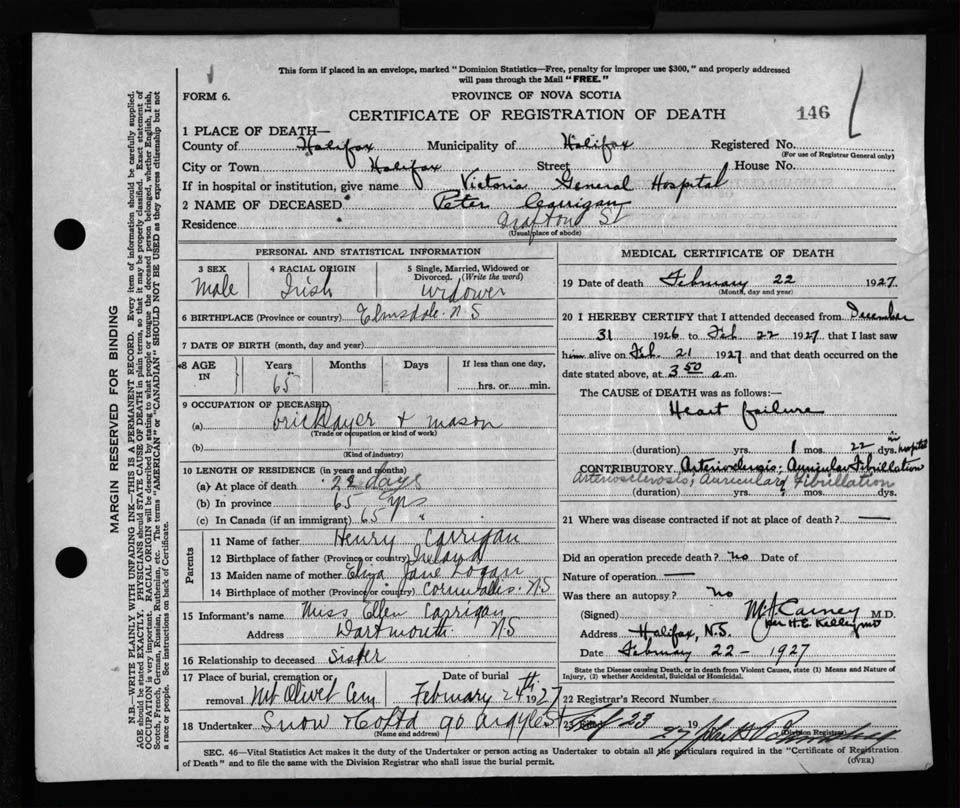 This form if placed in an envelope, marked "Dominion Statistics—Free, penalty for improper use $300," and properly addressed
will pass through the Mail "FREE."
FORM 6.
PROVINCE OF NOVA SCOTIA
CERTIFICATE OF REGISTRATION OF DEATH
146
1 PLACE OF DEATH—
County of Halifax Municipality of Halifax Registered No.
(For use of Registrar General only)
City or Town Halifax Street House No.
If in hospital or institution, give name Victoria General Hospital
2 NAME OF DECEASED Peter Carrigan
Residence Grafton St
(Usual place of abode)
PERSONAL AND STATISTICAL INFORMATION
3 SEX Male
4 RACIAL ORIGIN Irish
5 Single, Married, Widowed or Divorced. (Write the word) Widower
6 BIRTHPLACE (Province or country) Elmsdale N.S
7 DATE OF BIRTH (month, day and year)
8 AGE IN Years 65 Months Days If less than one day, hrs. or min.
9 OCCUPATION OF DECEASED
(a) bricklayer & mason
(Trade or occupation or kind of work)
(b)
(Kind of industry)
10 LENGTH OF RESIDENCE (in years and months)
(a) At place of death 22 days
(b) In province 65 yrs
(c) In Canada (if an immigrant) 65 "
Parents
11 Name of father Henry Carrigan
12 Birthplace of father (Province or country) Ireland
13 Maiden name of mother Eliza Jane Logan
14 Birthplace of mother (Province or country) Cornwallis. NS
15 Informant's name Miss Ellen Carrigan
Address Dartmouth NS
16 Relationship to deceased Sister
17 Place of burial, cremation or removal Mt Olivet Cem
Date of burial February 24th 1927
18 Undertaker Snow & Co Ltd 90 Argyle St
(Name and address)
MEDICAL CERTIFICATE OF DEATH
19 Date of death February 22 1927.
(Month, day and year)
20 I HEREBY CERTIFY that I attended deceased from December
31 1926 to Feb 22 1927. that I last saw
him alive on Feb. 21 1927 and that death occurred on the
date stated above, at 3 50 a.m.
The CAUSE of DEATH was as follows:—
Heart failure
(duration) yrs. 1 mos. 22 dys. in hospital
CONTRIBUTORY Arteriosclerosis; Auricular Fibrillation
Arteriosclerosis; Auricular Fibrillation
(duration) yrs. mos. dys.
21 Where was disease contracted if not at place of death? —
Did an operation precede death? no Date of
Nature of operation —
Was there an autopsy? no
(Signed) Carney M.D.
per H.E. Kelley MD
Address Halifax, N.S.
Date February 22 - 1927
State the Disease causing Death, or in death from Violent Causes, state (1) Means and Nature of
Injury, (2) whether Accidental, Suicidal or Homicidal.
22 Registrar's Record Number
23 23 19 27
(Division Registrar)
SEC. 46—Vital Statistics Act makes it the duty of the Undertaker or person acting as Undertaker to obtain all the particulars required in the "Certificate of Registration
of Death" and to file the same with the Division Registrar who shall issue the burial permit.
(OVER)
MARGIN RESERVED FOR BINDING
N.B.—WRITE PLAINLY WITH UNFADING INK—THIS IS A PERMANENT RECORD. Every item of information should be carefully supplied.
AGE should be stated EXACTLY. PHYSICIANS should STATE CAUSE OF DEATH in plain terms, so that it may be properly classified. Exact statement of
OCCUPATION is very important. RACIAL ORIGIN will be described by stating to what people or tongue the deceased person belonged, whether English, Irish,
Scotch, French, German, Russian, Ruthenian, etc. The terms "AMERICAN" or "CANADIAN" SHOULD NOT BE USED as they express citizenship but not
a race or people. See instructions on back of Certificate.